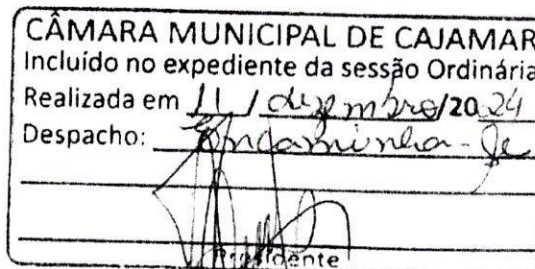 CÂMARA MUNICIPAL DE CAJAMAR
Incluído no expediente da sessão Ordinária
Realizada em 11 / dezembro/2024
Despacho: Encaminha-se
Presidente